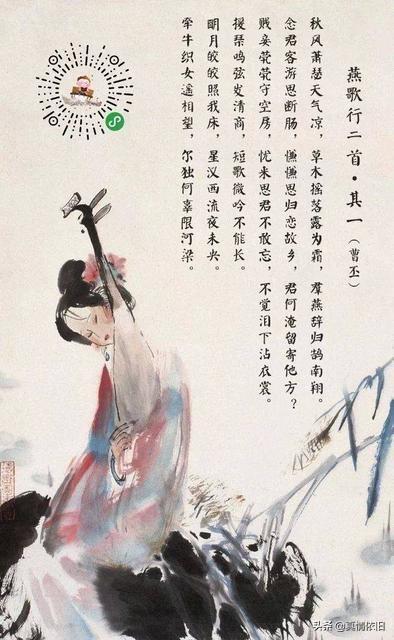 燕歌行二首·其一（曹丕）
秋风萧瑟天气凉，草木摇落露为霜，羣燕辞归鹄南翔。
念君客游思断肠，慊慊思归恋故乡，君何淹留寄他方？
贱妾茕茕守空房，忧来思君不敢忘，不觉泪下沾衣裳。
援琴鸣弦发清商，短歌微吟不能长。
明月皎皎照我床，星汉西流夜未央。
牵牛织女遥相望，尔独何辜限河梁。
头条 @真情依旧